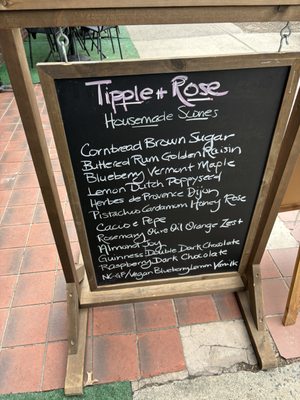 Tipple + Rose
Housemade Scones
Cornbread Brown Sugar
Buttered Rum Golden Raisin
Blueberry Vermont Maple
Lemon Dutch Poppyseed
Herbes de Provence Dijon
Pistachio Cardamom Honey Rose
Cacio e Pepe
Rosemary Olive Oil Orange Zest +
Almond Joy
Guinness Double Dark Chocolate
Raspberry Dark Chocolate
NC-GF/Vegan Blueberry Lemon Vanilla